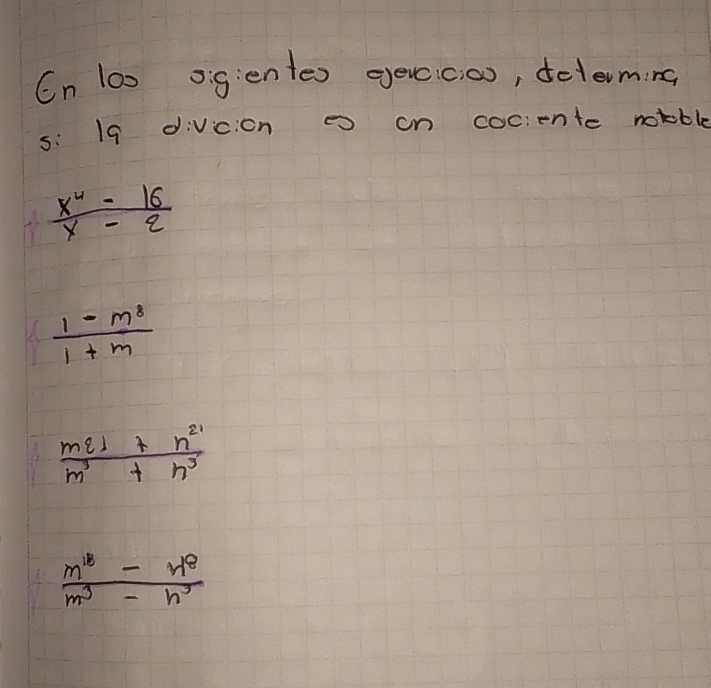 En los sigientes ejercicios, determina
si la divicion es un cociente notable
x⁴ - 16
x - 2
1 - m⁸
1 + m
m21 + n²¹
m³ + n³
m¹⁸ - n18
m³ - n³